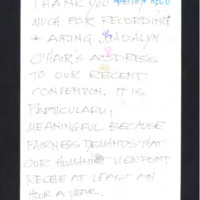 THANK YOU
MUCH FOR RECORDING
+ AIRING MADALYN
O'HAIR'S ADDRESS
TO OUR RECENT
CONVENTION. IT IS
PARTICULARLY
MEANINGFUL BECAUSE
FAIRNESS DEMANDS THAT
OUR HUMANIST VIEWPOINT
RECEIVE AT LEAST AN
HOUR A YEAR.